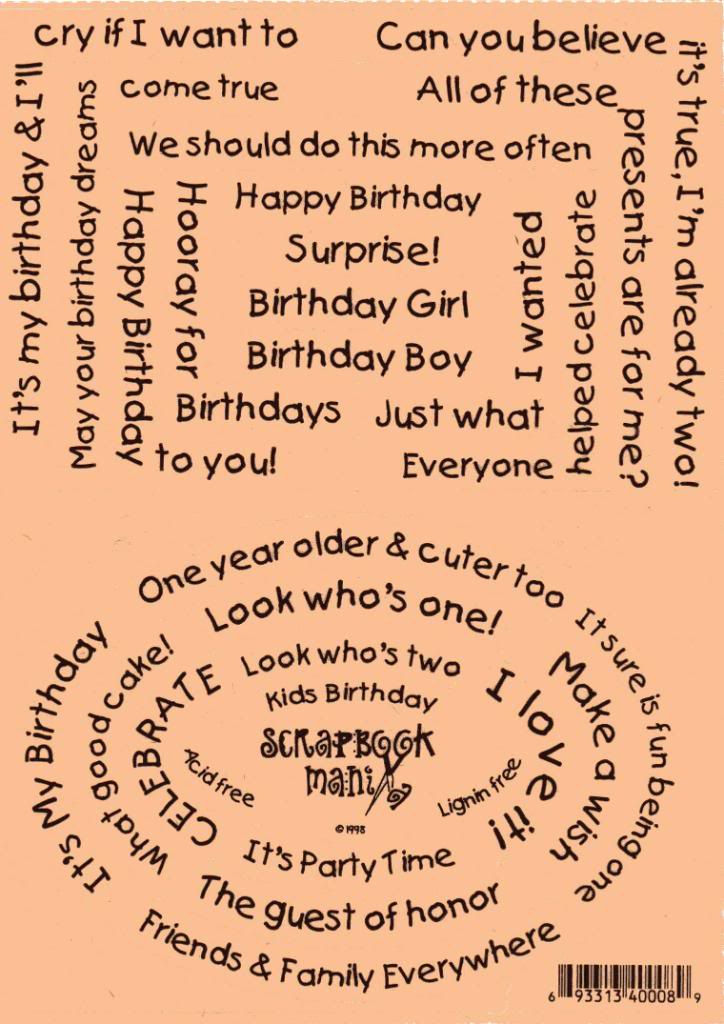 It's my birthday & I'll
cry if I want to
May your birthday dreams
come true
Can you believe
it's true, I'm already two!
All of these
presents are for me?
We should do this more often
Happy Birthday
to you!
Hooray for
Birthdays
Happy Birthday
Surprise!
Birthday Girl
Birthday Boy
Just what
I wanted
Everyone
helped celebrate
One year older & cuter too
Look who's one!
Look who's two
Kids Birthday
It's My Birthday
What good cake!
CELEBRATE
I love it!
Make a wish
It sure is fun being one
Scrapbook
mania
Acid free
Lignin free
©1998
It's Party Time
The guest of honor
Friends & Family Everywhere
6 93313 40008 9